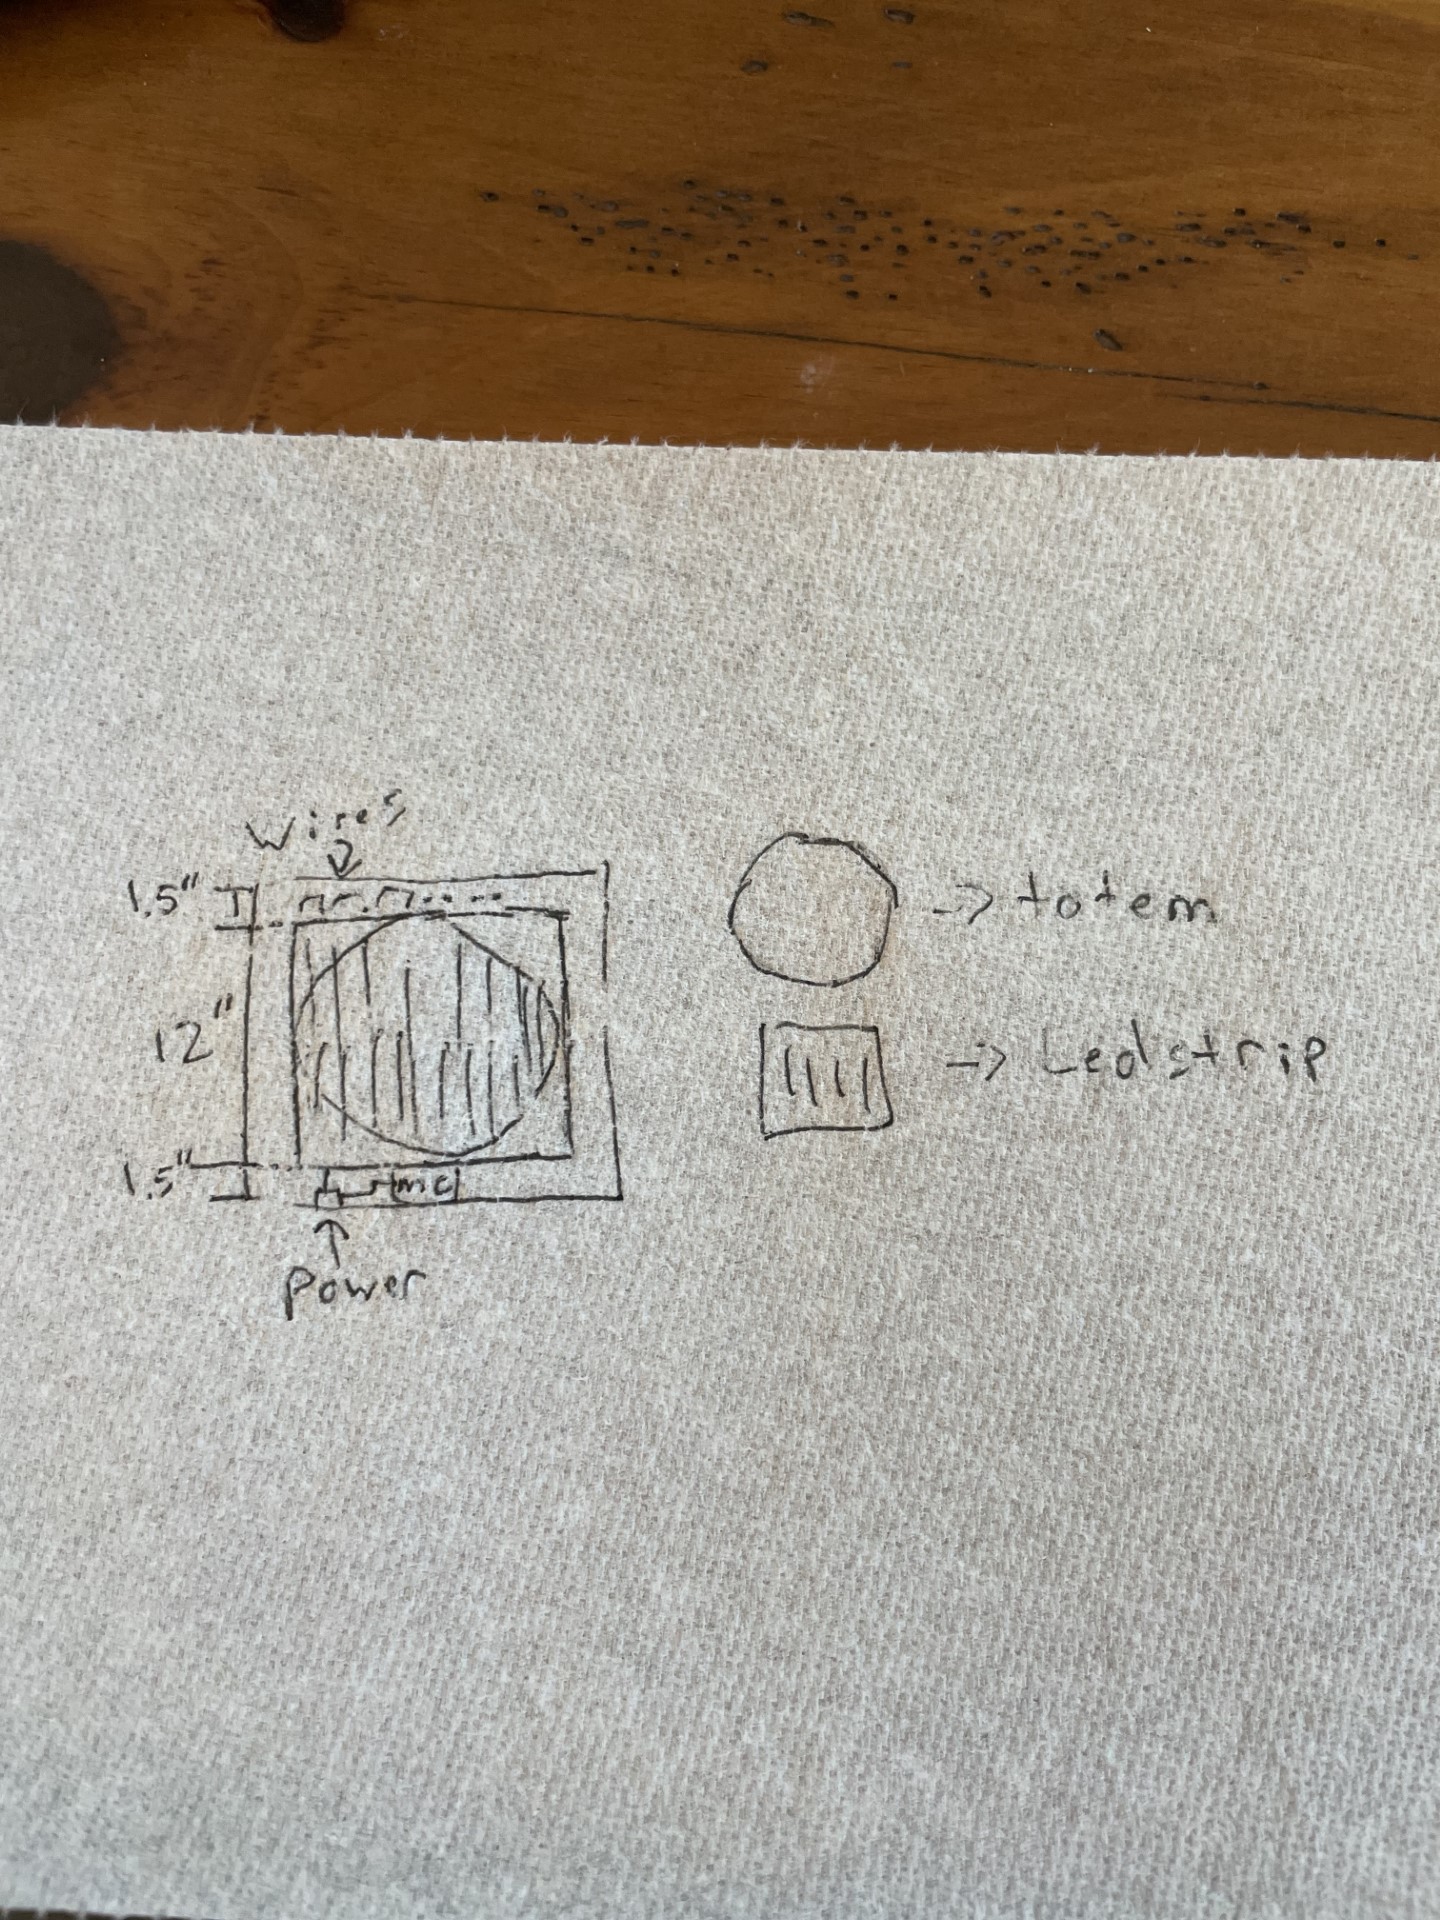 Wires
1.5"
12"
1.5"
mc
Power
-> totem
-> Led strip